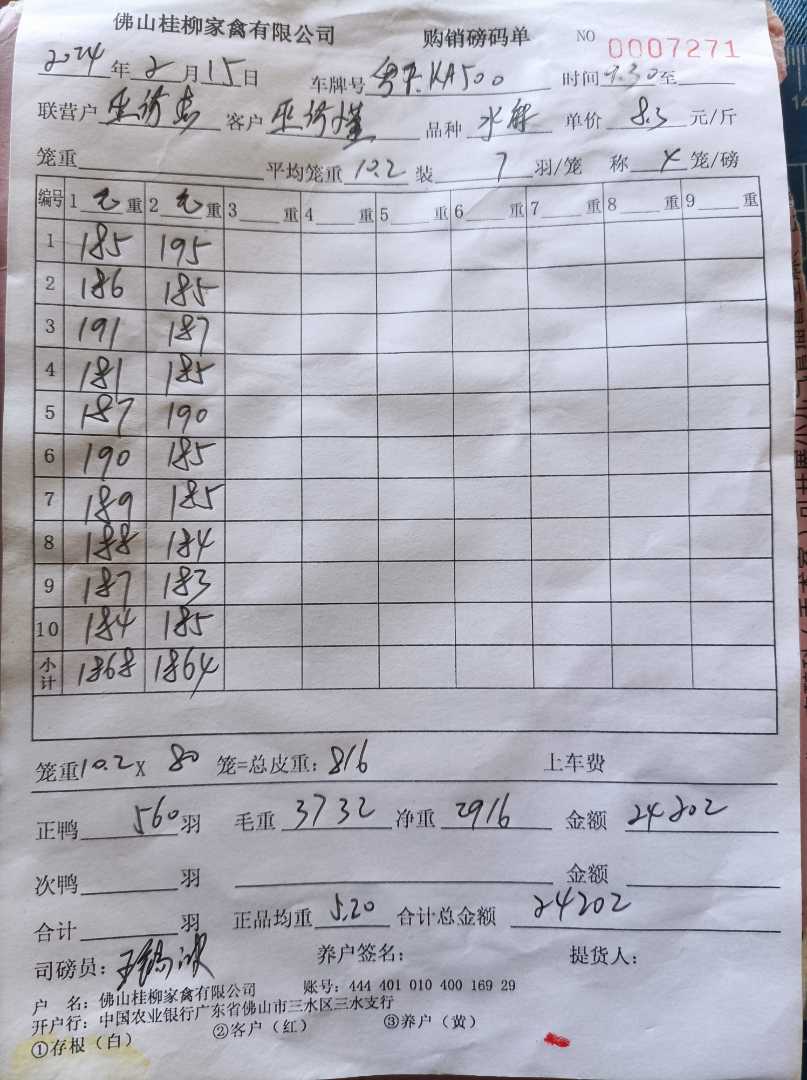 佛山桂柳家禽有限公司 购销磅码单 NO 0007271
2024年2月15日 车牌号 KA500 时间9.30至
联营户 客户 品种 单价 8.3 元/斤
笼重 平均笼重 10.2 装 7 羽/笼 称 4 笼/磅
编号 1 毛 重 2 毛 重 3 重 4 重 5 重 6 重 7 重 8 重 9 重
1 185 195
2 186 185
3 191 187
4 181 185
5 187 190
6 190 185
7 189 185
8 188 184
9 187 183
10 184 185
小计 1868 1864
笼重10.2X 80 笼=总皮重：816 上车费
正鸭 560 羽 毛重 3732 净重 2916 金额 24202
次鸭 羽 金额
合计 羽 正品均重 5.20 合计总金额 24202
司磅员： 养户签名： 提货人：
户 名：佛山桂柳家禽有限公司 账号：444 401 010 400 169 29
开户行：中国农业银行广东省佛山市三水区三水支行
①存根（白） ②客户（红） ③养户（黄）